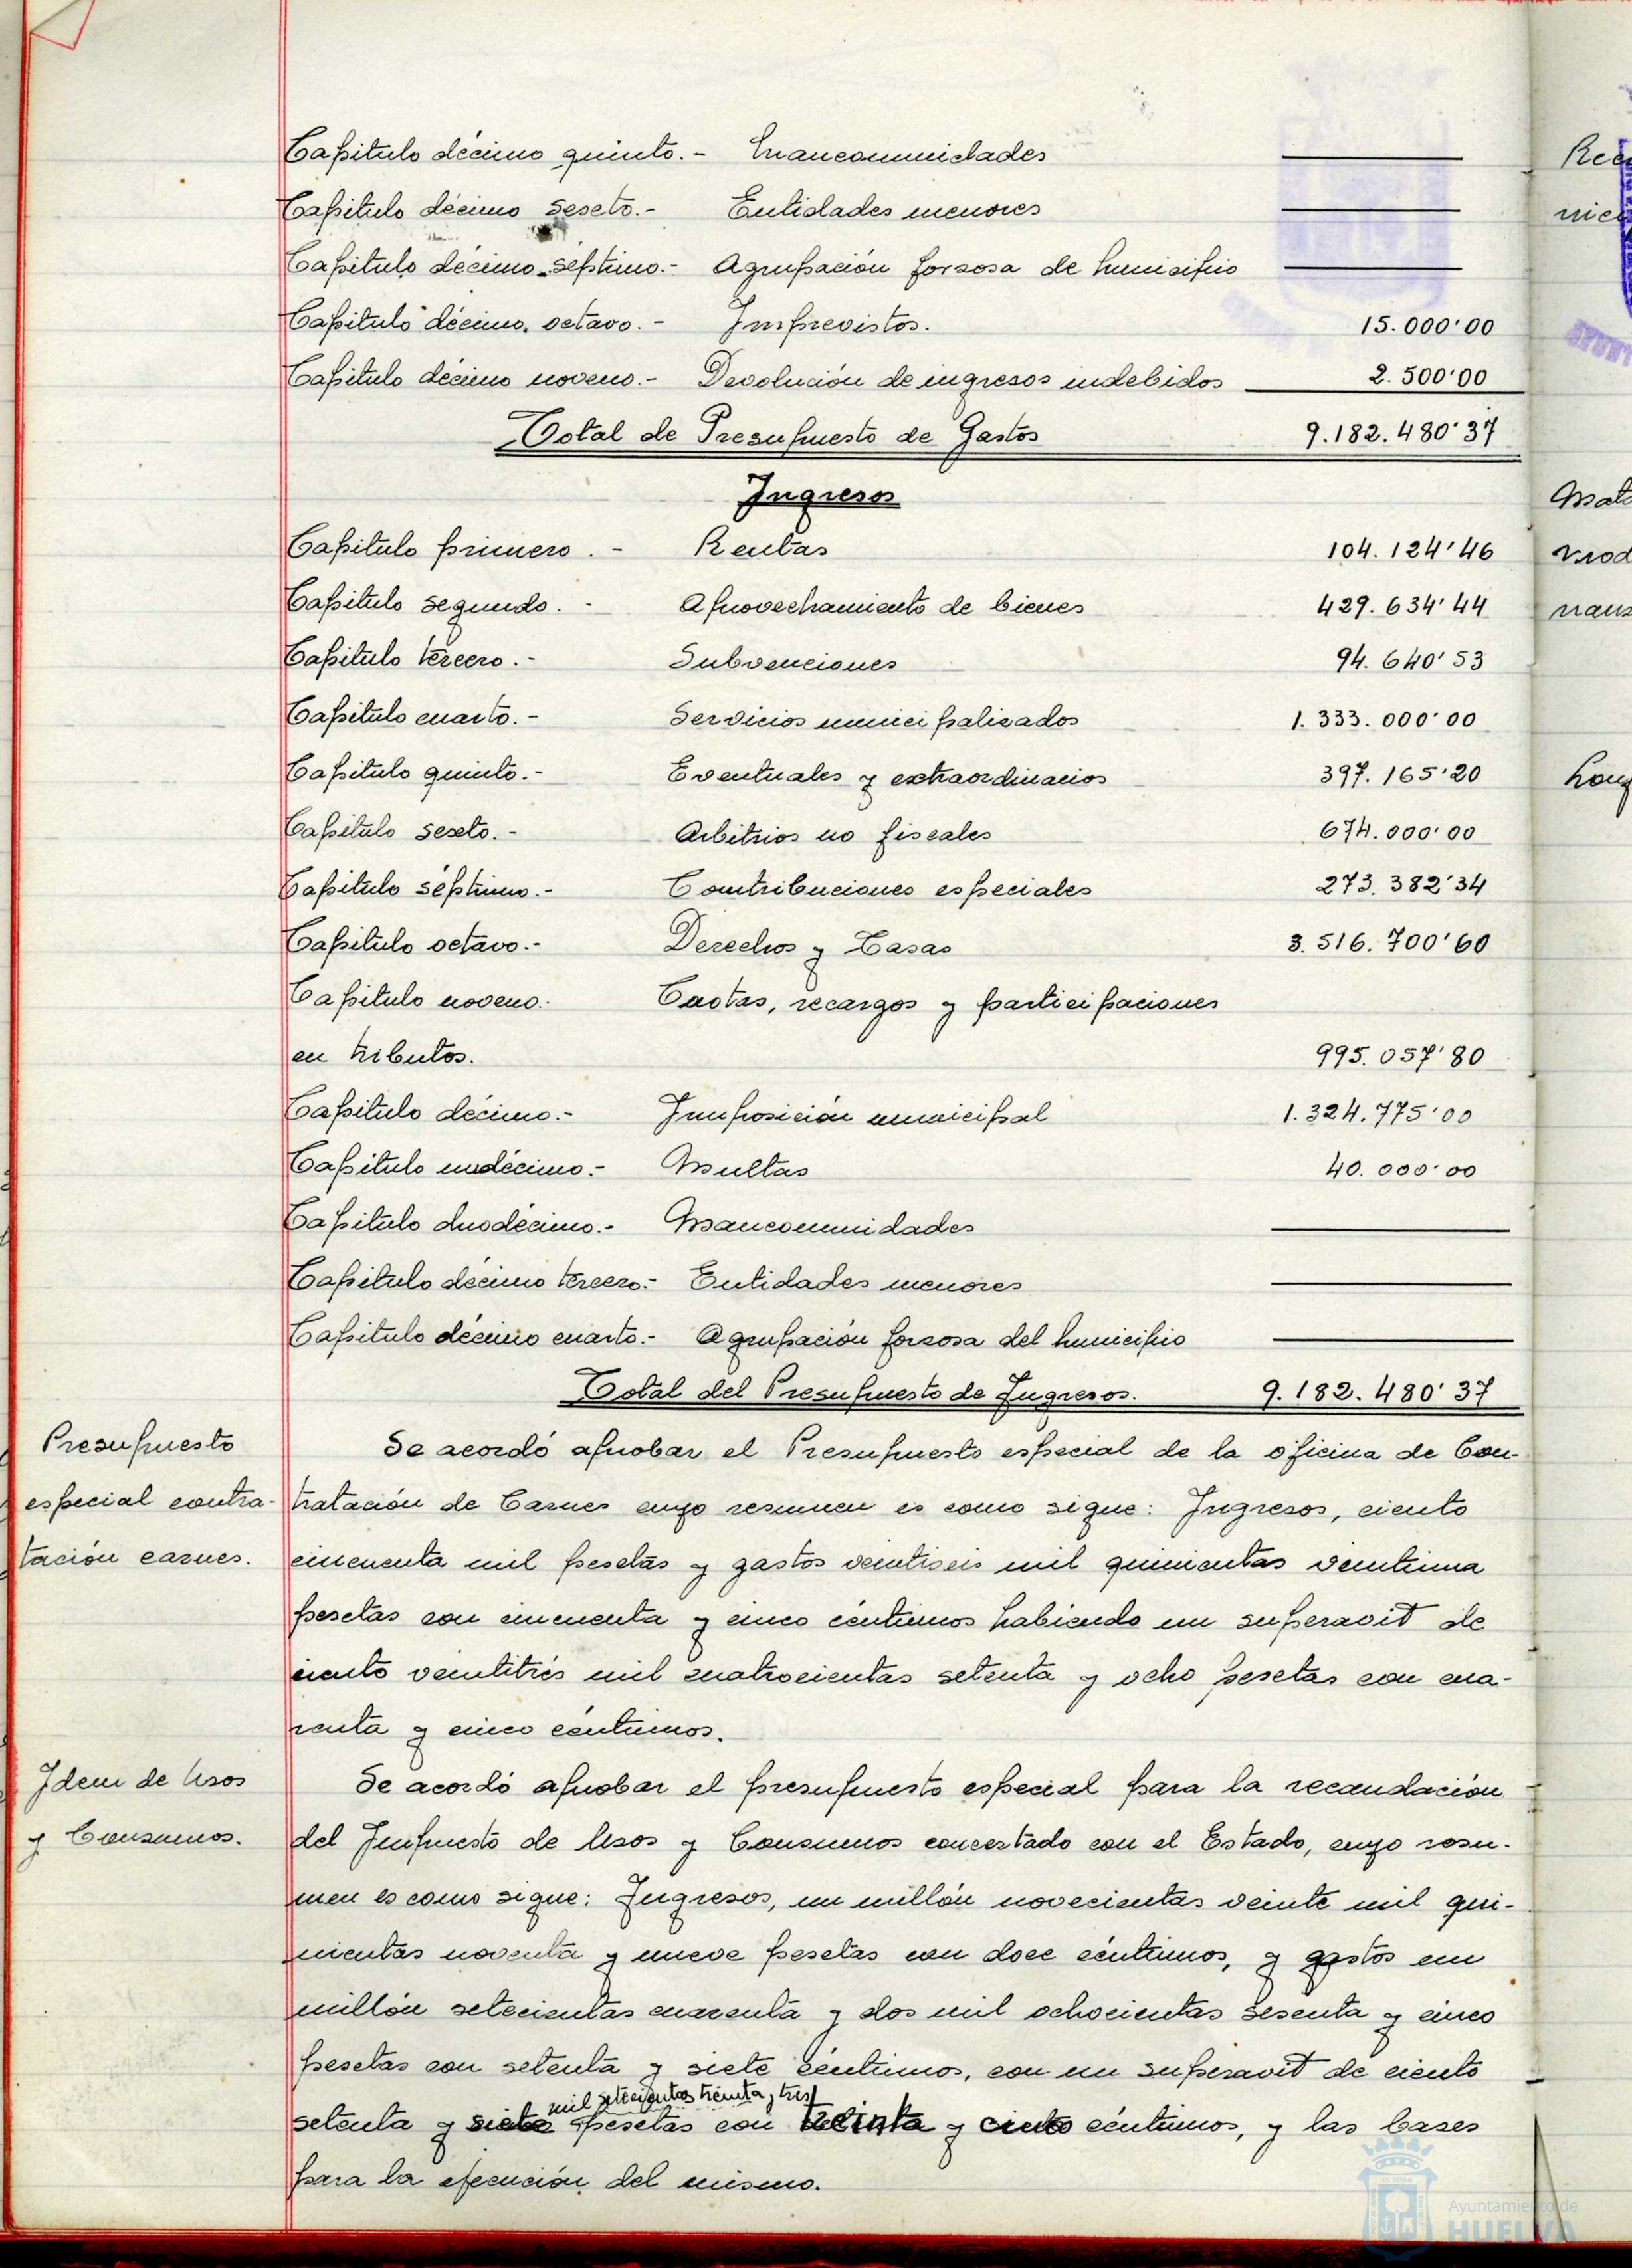 Capítulo décimo quinto.- Mancomunidades
Capítulo décimo sesto.- Entidades menores
Capítulo décimo séptimo.- Agrupación forzosa de Municipio
Capítulo décimo octavo.- Imprevistos. 15.000'00
Capítulo décimo noveno.- Devolución de ingresos indebidos 2.500'00
Total de Presupuesto de Gastos 9.182.480'37
Ingresos
Capítulo primero.- Rentas 104.124'46
Capítulo segundo.- Aprovechamiento de bienes 429.634'44
Capítulo tercero.- Subvenciones 94.640'53
Capítulo cuarto.- Servicios municipalizados 1.333.000'00
Capítulo quinto.- Eventuales y extraordinarios 397.165'20
Capítulo sexto.- Arbitrios no fiscales 674.000'00
Capítulo séptimo.- Contribuciones especiales 273.382'34
Capítulo octavo.- Derechos y Tasas 3.516.700'60
Capítulo noveno.- Cuotas, recargos y participaciones
en tributos. 995.057'80
Capítulo décimo.- Imposición municipal 1.324.775'00
Capítulo undécimo.- Multas 40.000'00
Capítulo duodécimo.- Mancomunidades
Capítulo décimo tercero.- Entidades menores
Capítulo décimo cuarto.- Agrupación forzosa del Municipio
Total del Presupuesto de Ingresos. 9.182.480'37
Presupuesto
especial contra-
tación carnes.
Se acordó aprobar el Presupuesto especial de la oficina de Con-
tratación de Carnes cuyo resumen es como sigue: Ingresos, ciento
cincuenta mil pesetas y gastos veintiseis mil quinientas veintiuna
pesetas con cincuenta y cinco céntimos habiendo un superavit de
ciento veintitrés mil cuatrocientas setenta y ocho pesetas con cua-
renta y cinco céntimos.
Idem de Usos
y Consumos.
Se acordó aprobar el presupuesto especial para la recaudación
del Impuesto de Usos y Consumos concertado con el Estado, cuyo resu-
men es como sigue: Ingresos, un millón novecientas veinte mil qui-
nientas noventa y nueve pesetas con doce céntimos, y gastos un
millón setecientas cuarenta y dos mil ochocientas sesenta y cinco
pesetas con setenta y siete céntimos, con un superavit de ciento
mil setecientos treinta y tres
setenta y siete pesetas con treinta y cinco céntimos, y las bases
para la ejecución del mismo.
Ayuntamiento de
HUELVA